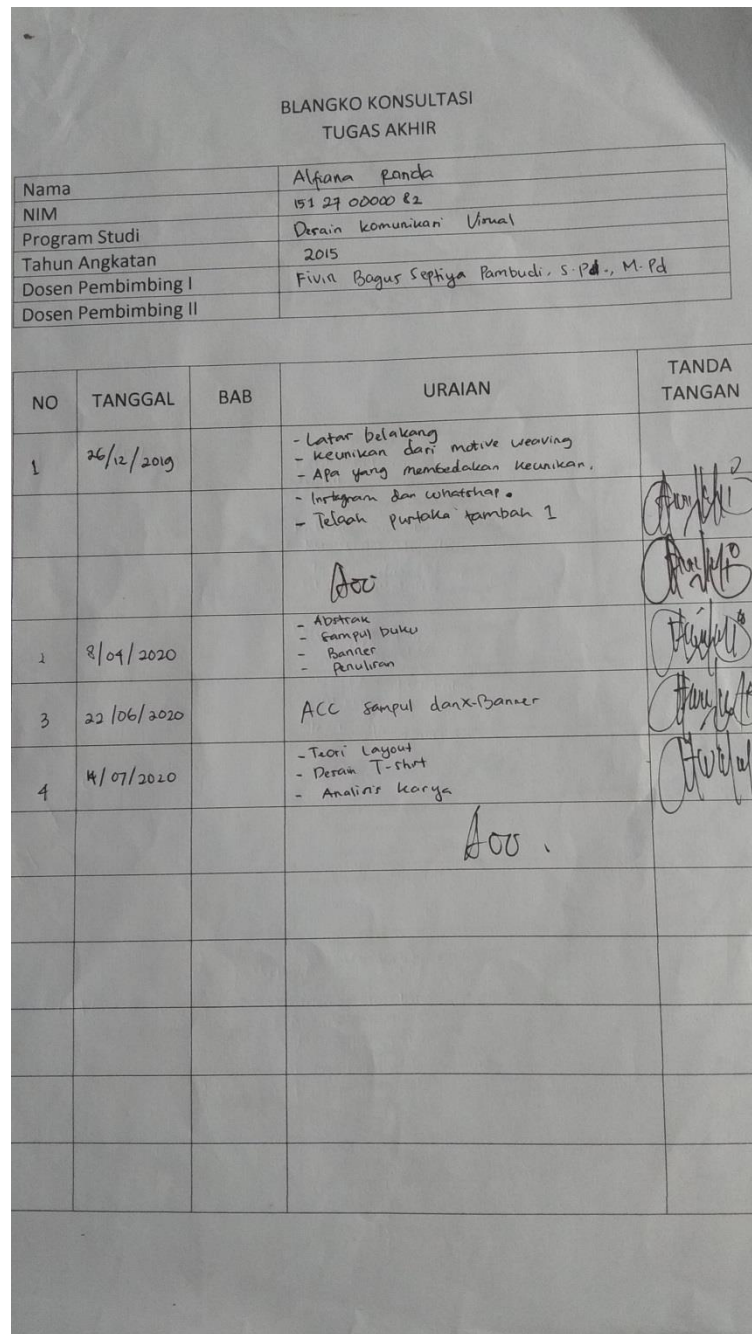 BLANGKO KONSULTASI
TUGAS AKHIR
Nama Alfiana Randa
NIM 151 27 00000 82
Program Studi Desain komunikasi Visual
Tahun Angkatan 2015
Dosen Pembimbing I Fivin Bagus Septiya Pambudi. S.Pd., M.Pd
Dosen Pembimbing II
NO TANGGAL BAB URAIAN TANDA TANGAN
1 26/12/2019 - Latar belakang
- keunikan dari motive weaving
- Apa yang membedakan keunikan.
- Instagram dan whatshap.
- Telaah pustaka tambah 1
Acc
2 8/04/2020 - Abstrak
- Sampul buku
- Banner
- Penulisan
3 22/06/2020 ACC sampul dan x-Banner
4 14/07/2020 - Teori Layout
- Desain T-shirt
- Analisis karya
Acc.